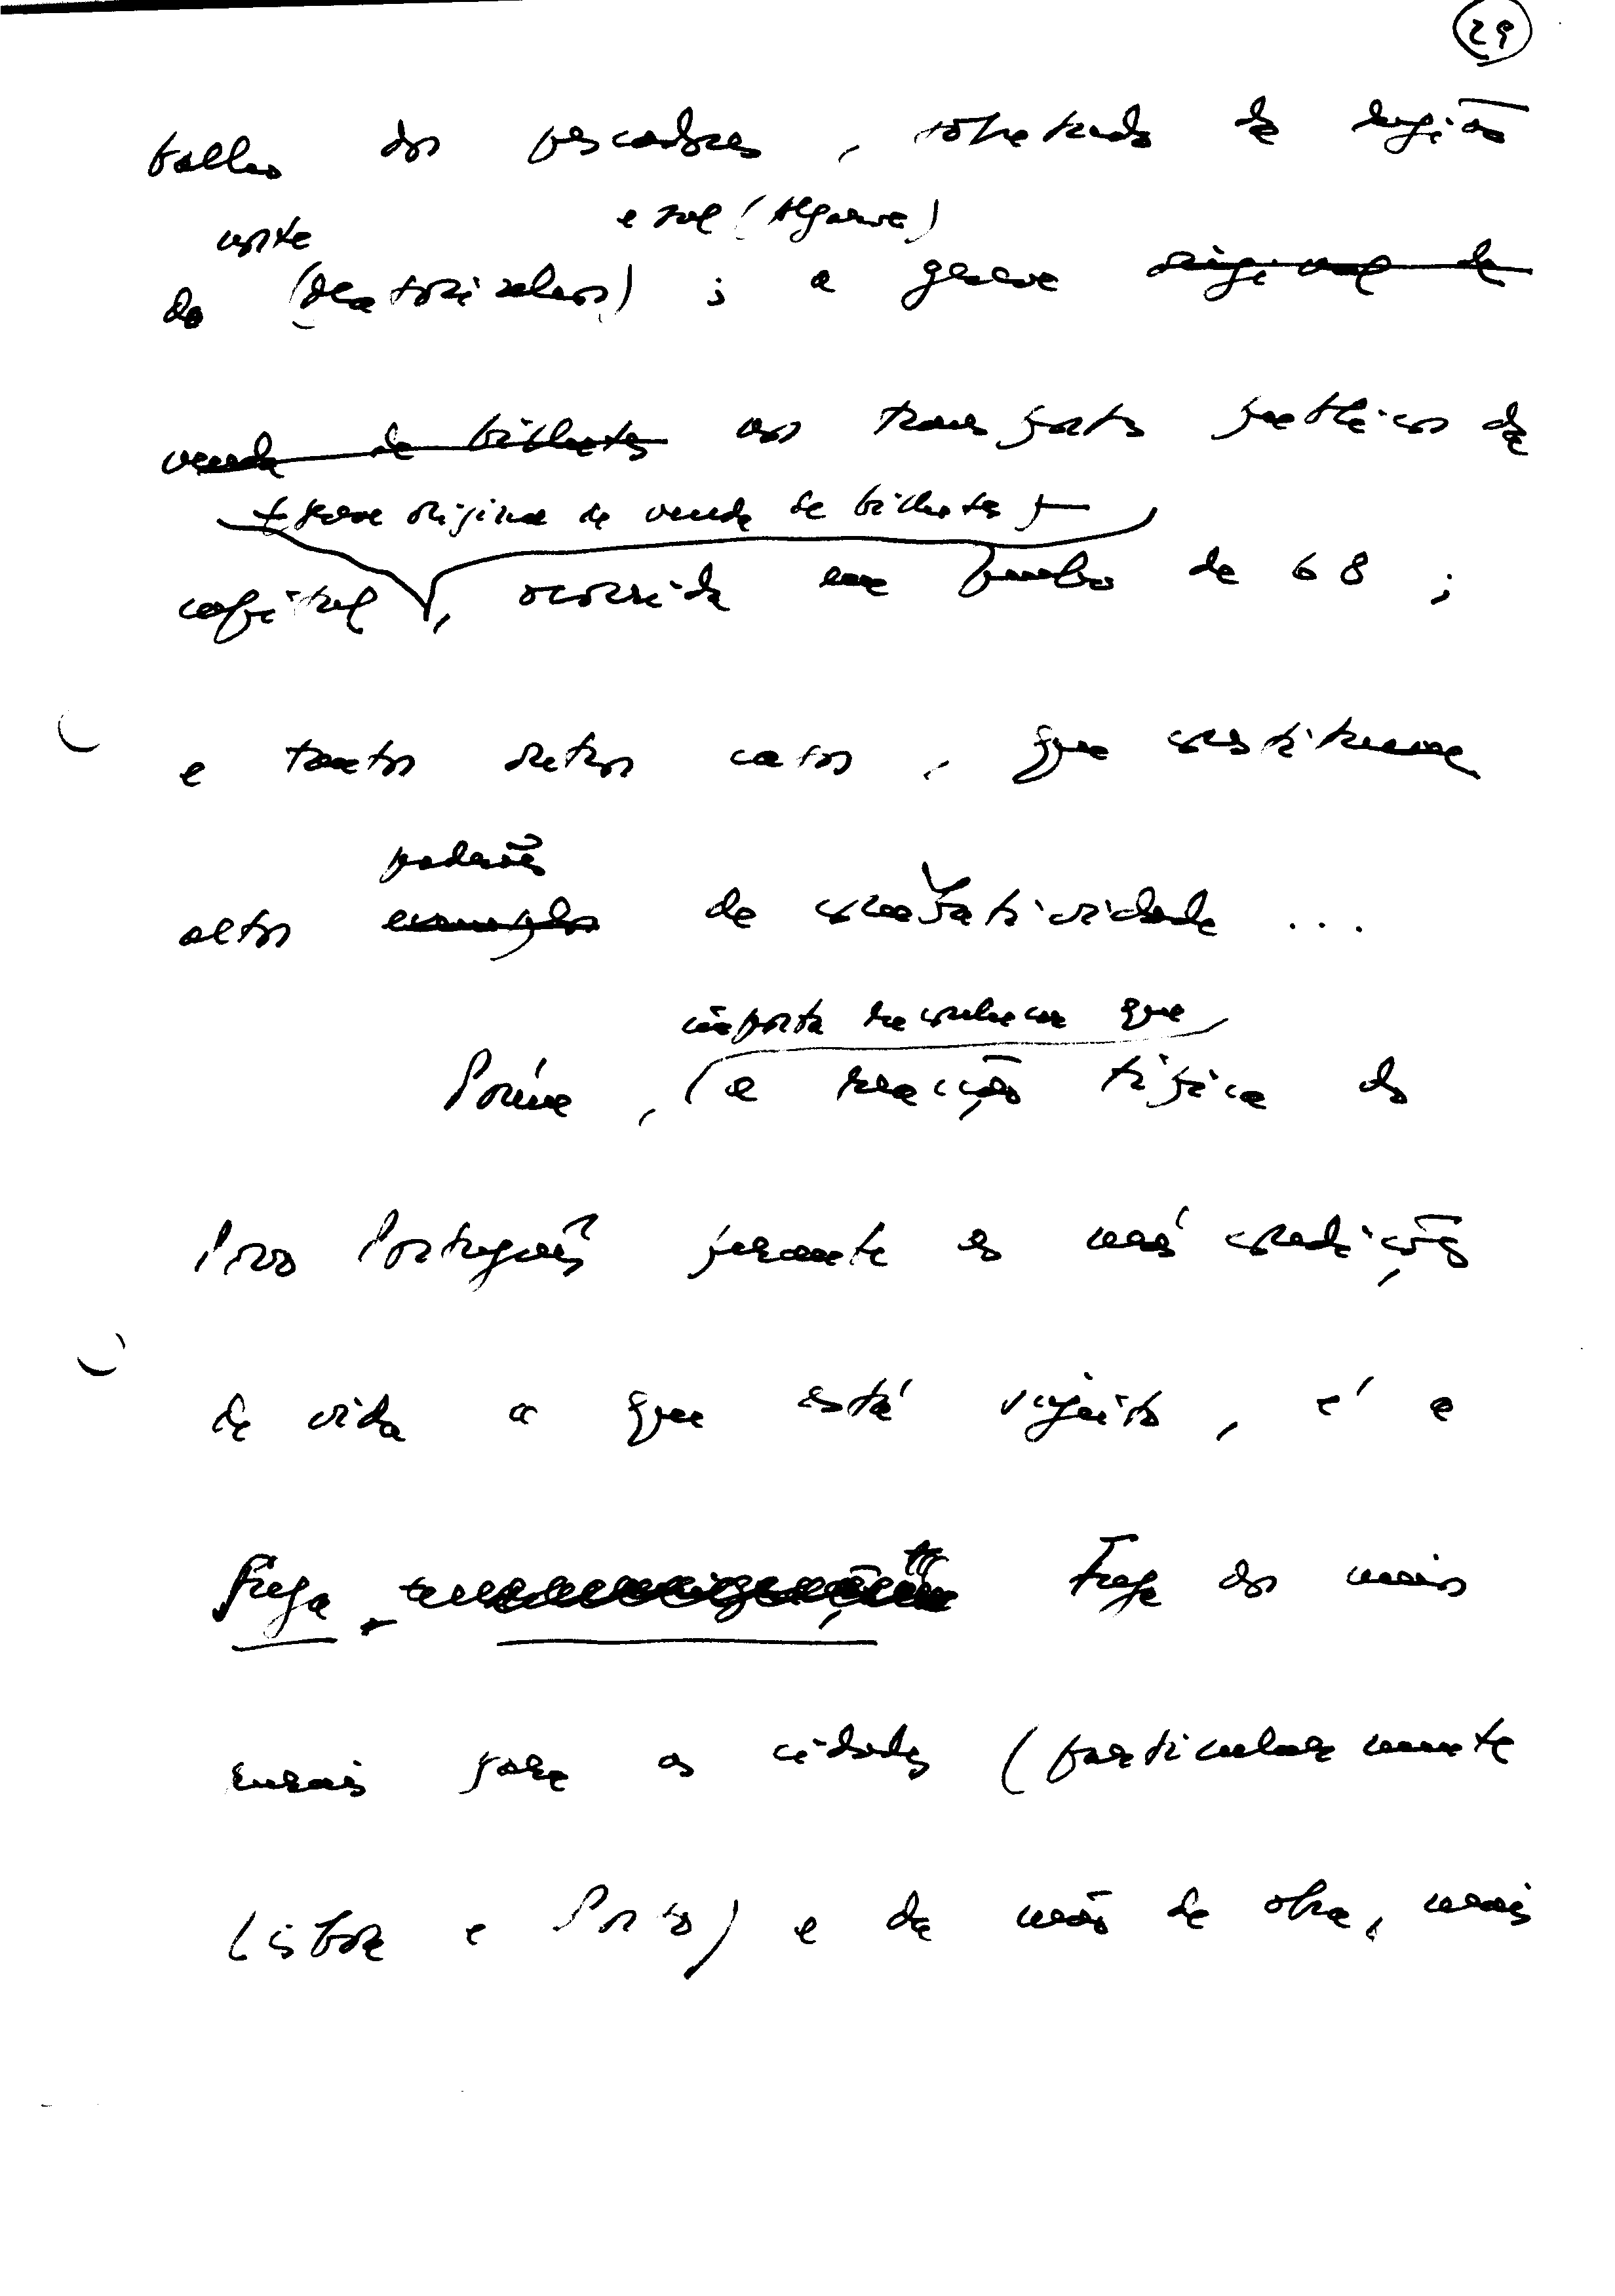 29
balho dos pescadores, sobretudo da região
norte e sul (Algarve)
do (Matosinhos) ; a greve original de
venda de bilhetes nos transportes públicos da
(greve original de venda de bilhetes)
capital, ocorrida em Junho de 68 ;
e tantos outros casos, que constituem
padrões
altos exemplos de combatividade ...
importa reconhecer que
Porém, a reacção típica do
Povo Português perante as más condições
de vida a que está sujeito, é a
fuga. Fuga dos mais
rurais para as cidades (particularmente
Lisboa e Porto) e da mão de obra, mais